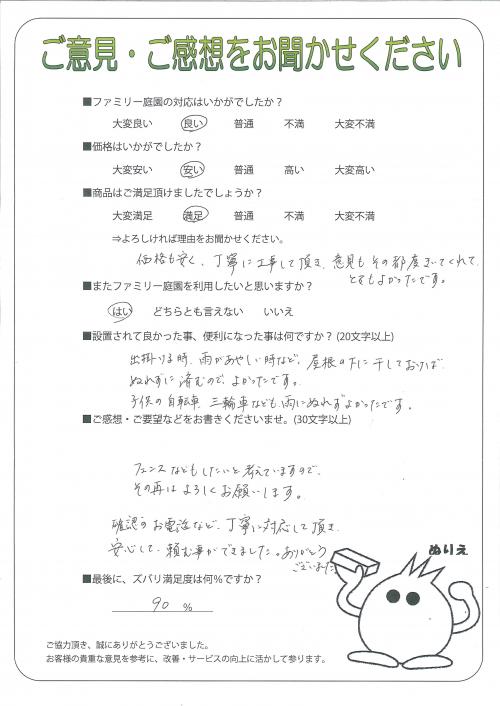 ご意見・ご感想をお聞かせください
■ファミリー庭園の対応はいかがでしたか？
大変良い 良い 普通 不満 大変不満
■価格はいかがでしたか？
大変安い 安い 普通 高い 大変高い
■商品はご満足頂けましたでしょうか？
大変満足 満足 普通 不満 大変不満
⇒よろしければ理由をお聞かせください。
価格も安く、丁寧に工事して頂き、意見もその都度きいてくれて、
とてもよかったです。
■またファミリー庭園を利用したいと思いますか？
はい どちらとも言えない いいえ
■設置されて良かった事、便利になった事は何ですか？(20文字以上)
出掛ける時、雨があやしい時など、屋根の下に干しておけば、
ぬれずに済むので、よかったです。
子供の自転車、三輪車なども、雨にぬれずよかったです。
■ご感想・ご要望などをお書きくださいませ。(30文字以上)
フェンスなどもしたいと考えていますので、
その再はよろしくお願いします。
確認のお電話など、丁寧に対応して頂き、
安心して、頼む事ができました。ありがとう
ございました
ぬりえ
■最後に、ズバリ満足度は何％ですか？
90 %
ご協力頂き、誠にありがとうございました。
お客様の貴重な意見を参考に、改善・サービスの向上に活かして参ります。